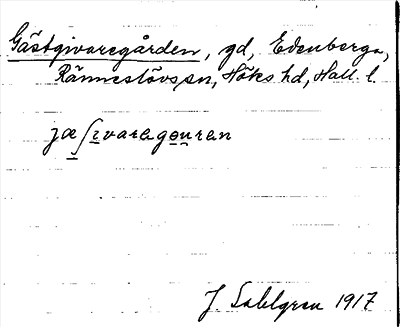 Gästgivaregården, gd, Edenberga,
Ränneslövs sn, Höks hd, Hall. l.
jæʃɪvaragɷuran
J. Sahlgren 1917